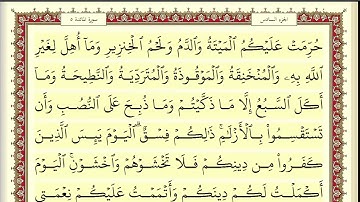 الجزء السادس
سورة المائدة ٥
حُرِّمَتۡ عَلَيۡكُمُ ٱلۡمَيۡتَةُ وَٱلدَّمُ وَلَحۡمُ ٱلۡخِنزِيرِ وَمَآ أُهِلَّ لِغَيۡرِ
ٱللَّهِ بِهِۦ وَٱلۡمُنۡخَنِقَةُ وَٱلۡمَوۡقُوذَةُ وَٱلۡمُتَرَدِّيَةُ وَٱلنَّطِيحَةُ وَمَآ
أَكَلَ ٱلسَّبُعُ إِلَّا مَا ذَكَّيۡتُمۡ وَمَا ذُبِحَ عَلَى ٱلنُّصُبِ وَأَن
تَسۡتَقۡسِمُواْ بِٱلۡأَزۡلَٰمِۚ ذَٰلِكُمۡ فِسۡقٌۗ ٱلۡيَوۡمَ يَئِسَ ٱلَّذِينَ
كَفَرُواْ مِن دِينِكُمۡ فَلَا تَخۡشَوۡهُمۡ وَٱخۡشَوۡنِۚ ٱلۡيَوۡمَ
أَكۡمَلۡتُ لَكُمۡ دِينَكُمۡ وَأَتۡمَمۡتُ عَلَيۡكُمۡ نِعۡمَتِي